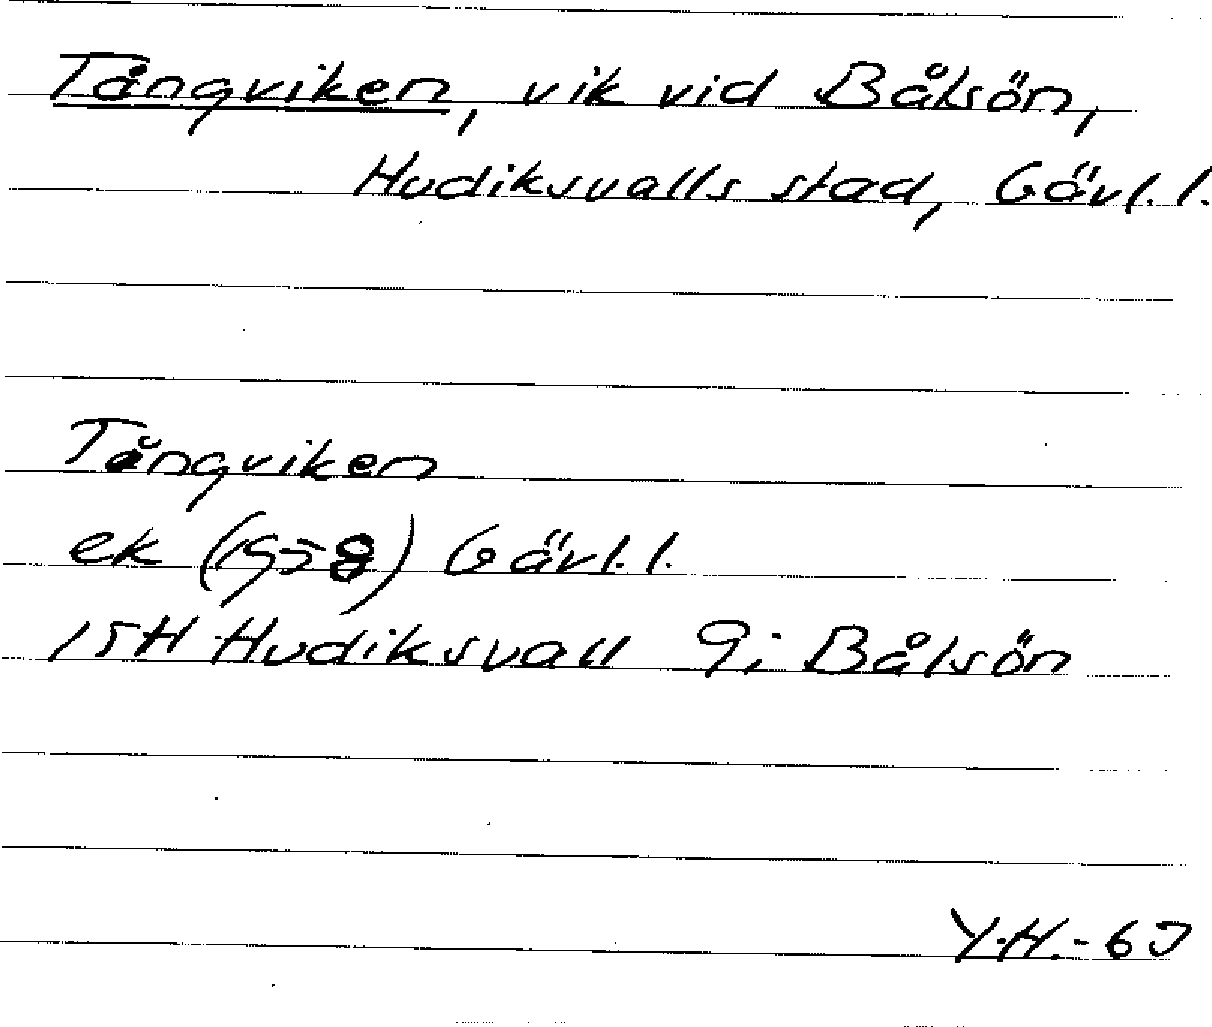 Tångviken, vik vid Bålsön,
Hudiksvalls stad, Gävl. l.
Tångviken
ek (1958) Gävl. l.
15H Hudiksvall 9i Bålsön
Y.H.-63